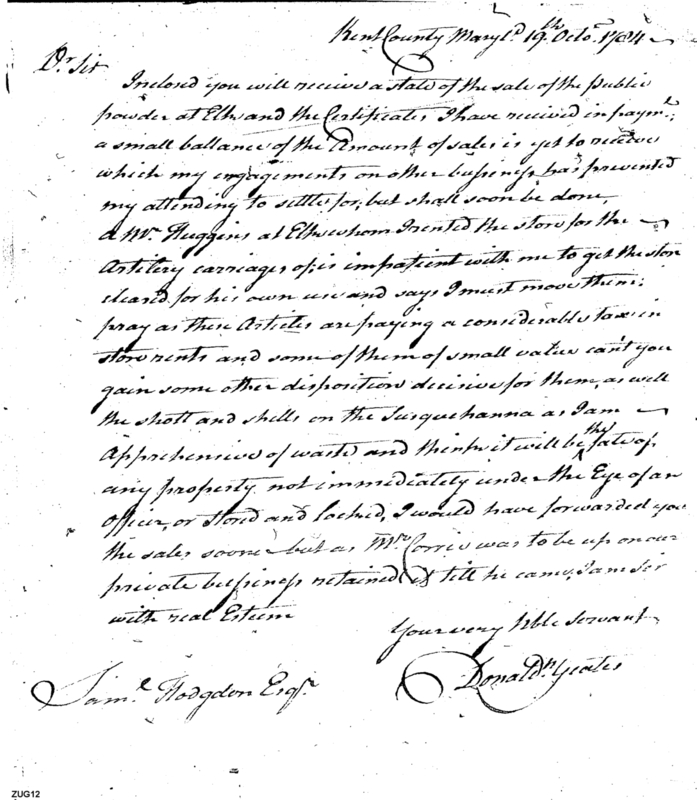 Kent County Maryld. 19th. Octor. 1784
Dr. Sir
Inclosed you will receive a state of the sale of the Public
powder at Elk and the Certificates I have received in paymt.;
a small ballance of the Amount of sales is yet to receive
which my engagements on other bussiness has prevented
my attending to settle for, but shall soon be done,
a Mr. Huggins at Elk whom I rented the store for the
Artilery carriages of; is impatient with me to get the store
cleared for his own use and says I must move them;
pray as these Articles are paying a considerable tax in
store rents and some of them of small value can't you
gain some other disposition decisive for them, as well
the shott and shells on the Susquehanna as I am
Apprehensive of waste and think it will be the fate of
any property not immediately under the Eye of an
Officer, or stored and locked, I would have forwarded you
the sales sooner but as Mr. Corrie was to be up on our
private bussiness retained it till he came, I am Sir
with real Esteem
Your very Hble Servant
Donaldn. Yeates
Saml. Hodgdon Esqr.
ZUG12